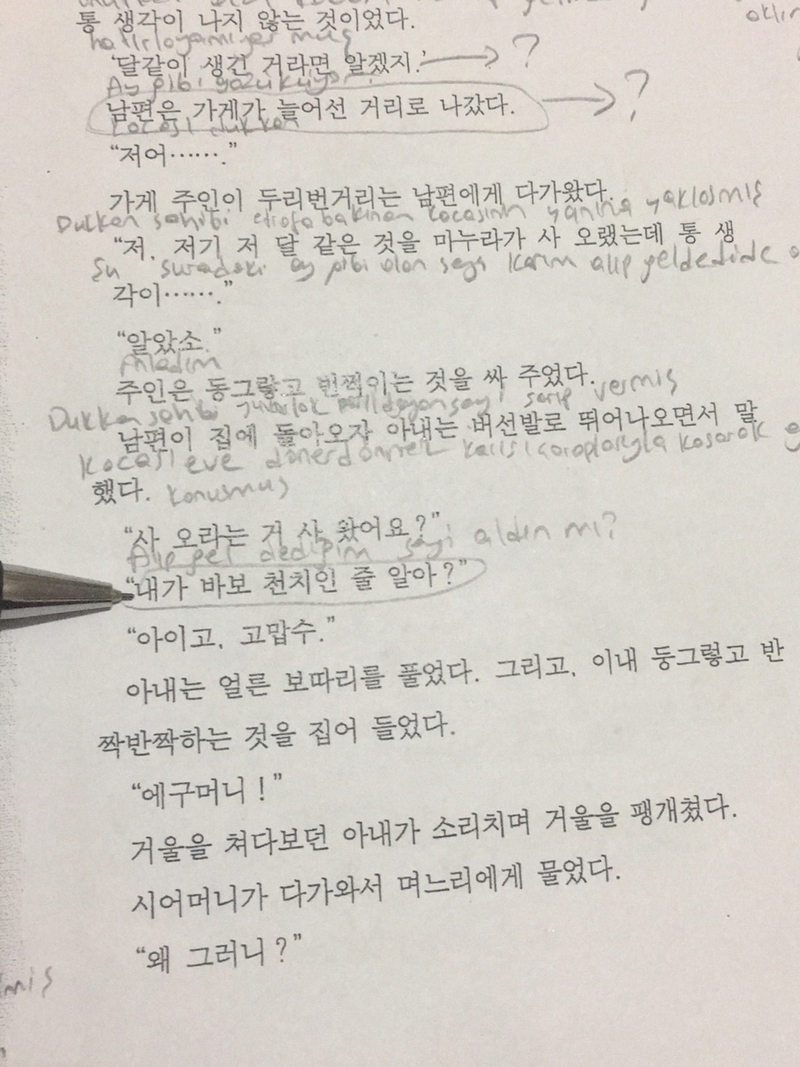 통 생각이 나지 않는 것이었다.
hatırlayamıyormuş
‘달같이 생긴 거라면 알겠지.’ → ?
Ay gibi
남편은 가게가 늘어선 거리로 나갔다. → ?
kocası dükkan
“저어…….”
가게 주인이 두리번거리는 남편에게 다가왔다.
Dükkan sahibi etrafa bakınan kocasının yanına yaklaşmış
“저. 저기 저 달 같은 것을 마누라가 사 오랬는데 통 생
Şu şuradaki ay gibi olan şeyi karım alıp gel dedi de
각이…….”
“알았소.”
Anladım
주인은 동그랗고 번쩍이는 것을 싸 주었다.
Dükkan sahibi yuvarlak şeyi sarıp vermiş
남편이 집에 돌아오자 아내는 버선발로 뛰어나오면서 말
Kocası eve döner dönmez karısı çoraplarıyla koşarak
했다. konuşmuş
“사 오라는 거 사 왔어요?”
Alıp gel dediğim şeyi aldın mı?
“내가 바보 천치인 줄 알아?”
“아이고, 고맙수.”
아내는 얼른 보따리를 풀었다. 그리고, 이내 둥그렇고 반
짝반짝하는 것을 집어 들었다.
“에구머니!”
거울을 쳐다보던 아내가 소리치며 거울을 팽개쳤다.
시어머니가 다가와서 며느리에게 물었다.
“왜 그러니?”
mış